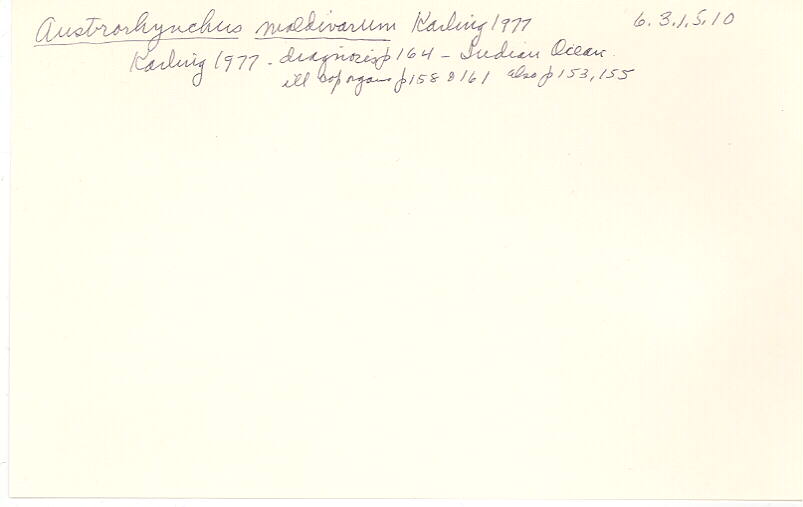 Austrorhynchus maldivarum Karling 1977 6.3.1.5.10
Karling 1977 - diagnosis p 164 - Indian Ocean.
ill cop organs p 158 & 161 also p 153, 155